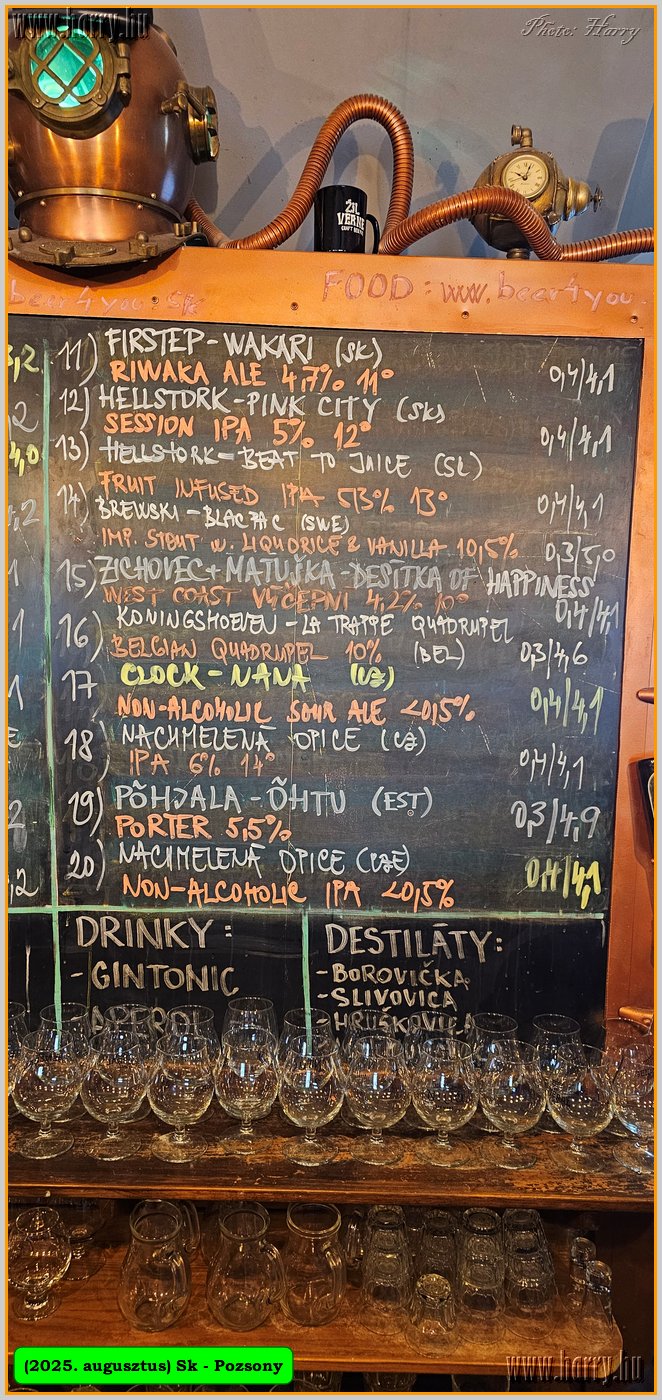 www.horry.hu
Photo: Harry
ŽIL
VERNE
beer4you.sk
FOOD: www.beer4you.
11) FIRSTEP - WAKARI (SK)
RIWAKA ALE 4,7% 11° 0,4/4,1
12) HELLSTORK - PINK CITY (SK)
SESSION IPA 5% 12° 0,4/4,1
13) HELLSTORK - BEAT TO JUICE (SK)
FRUIT INFUSED IPA 5,3% 13° 0,4/4,1
14) BREWSKI - BLACPAC (SWE)
IMP. STOUT W. LIQUORICE & VANILLA 10,5% 0,3/5,0
15) ZICHOVEC + MATUŠKA - DESÍTKA OF HAPPINESS
WEST COAST VÝČEPNÍ 4,2% 10° 0,4/4,1
16) KONINGSHOEVEN - LA TRAPPE QUADRUPEL
BELGIAN QUADRUPEL 10% (BEL) 0,3/4,6
17 CLOCK - NANA (CZ)
NON-ALCOHOLIC SOUR ALE <0,5% 0,4/4,1
18) NACHMELENÁ OPICE (CZ)
IPA 6% 14° 0,4/4,1
19) PÕHJALA - ÕHTU (EST)
PORTER 5,5% 0,3/4,9
20) NACHMELENÁ OPICE (CZE)
NON-ALCOHOLIC IPA <0,5% 0,4/4,1
DRINKY:
- GINTONIC
- APEROL
DESTILÁTY:
- BOROVIČKA
- SLIVOVICA
- HRUŠKOVICA
(2025. augusztus) Sk - Pozsony
www.horry.hu